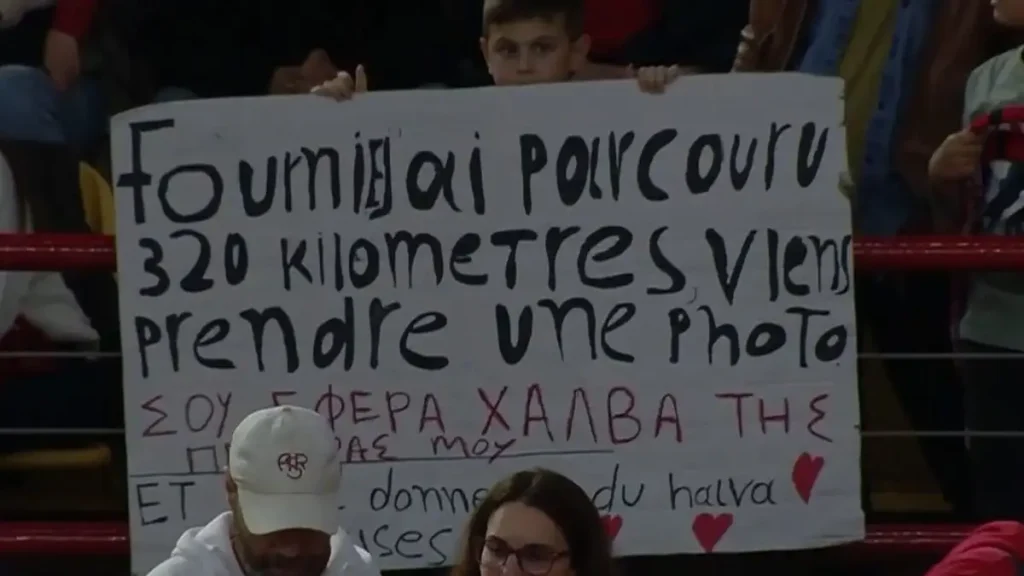 FourniE Jai parcouru
320 kilometres, viens
prendre une photo
ΣΟΥ ΕΦΕΡΑ ΧΑΛΒΑ ΤΗΣ
ΜΟΥ
ET du halva